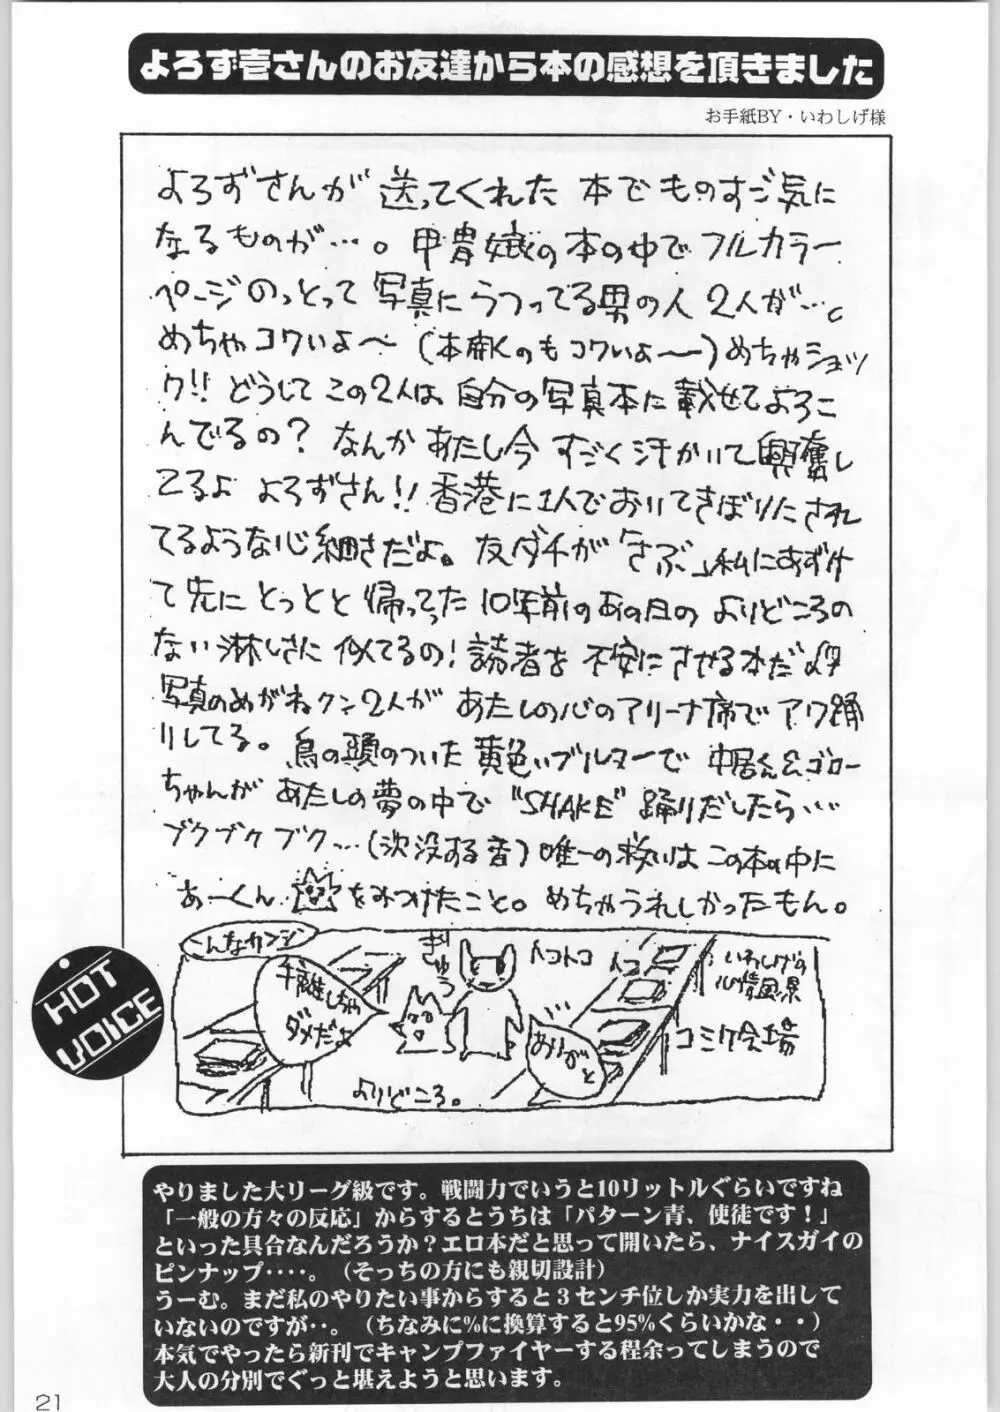 よろず壱さんのお友達から本の感想を頂きました
お手紙BY・いわしげ様
よろずさんが 送ってくれた 本で ものすごく気に
なるものが…。甲冑娘の本の中で フルカラー
ページの とって 写真に うつってる男の人 2人が…。
めちゃコワいよ〜 (本開くのも コワいよ〜) めちゃショッ
ク!! どうして この2人は、自分の写真本に載せてよろこ
んでるの? なんか あたし今 すごく汗かいて興奮し
てるよ よろずさん!! 香港に1人でおいてきぼりにされ
てるような心細さだよ。友ダチが「さぶ」私にあずけ
て先に とっとと 帰ってった 10年前のあの日の よりどころの
ない淋しさに 似てるの! 読者を 不安にさせる本だよ
写真のめがねクン2人が あたしの心のアリーナ席でアワ踊
りしてる。鳥の頭のついた 黄色いブルマーで 中居くん&ゴロー
ちゃんが あたしの夢の中で "SHAKE" 踊りだしたら…
ブクブクブク…(沈没する音) 唯一の救いは この本の中に
あーくん をみつけたこと。めちゃうれしかったもん。
こんなカンジ
手離しちゃ
ダメだよ
ぎゅう
トコトコ
トコ
ありがと
いわしげの
心情風景
コミケ会場
よりどころ。
HOT
VOICE
やりました大リーグ級です。戦闘力でいうと10リットルぐらいですね
「一般の方々の反応」からするとうちは「パターン青、使徒です！」
といった具合なんだろうか？エロ本だと思って開いたら、ナイスガイの
ピンナップ‥‥。（そっちの方にも親切設計）
うーむ。まだ私のやりたい事からすると３センチ位しか実力を出して
いないのですが‥。（ちなみに%に換算すると95%くらいかな・・）
本気でやったら新刊でキャンプファイヤーする程余ってしまうので
大人の分別でぐっと堪えようと思います。
21